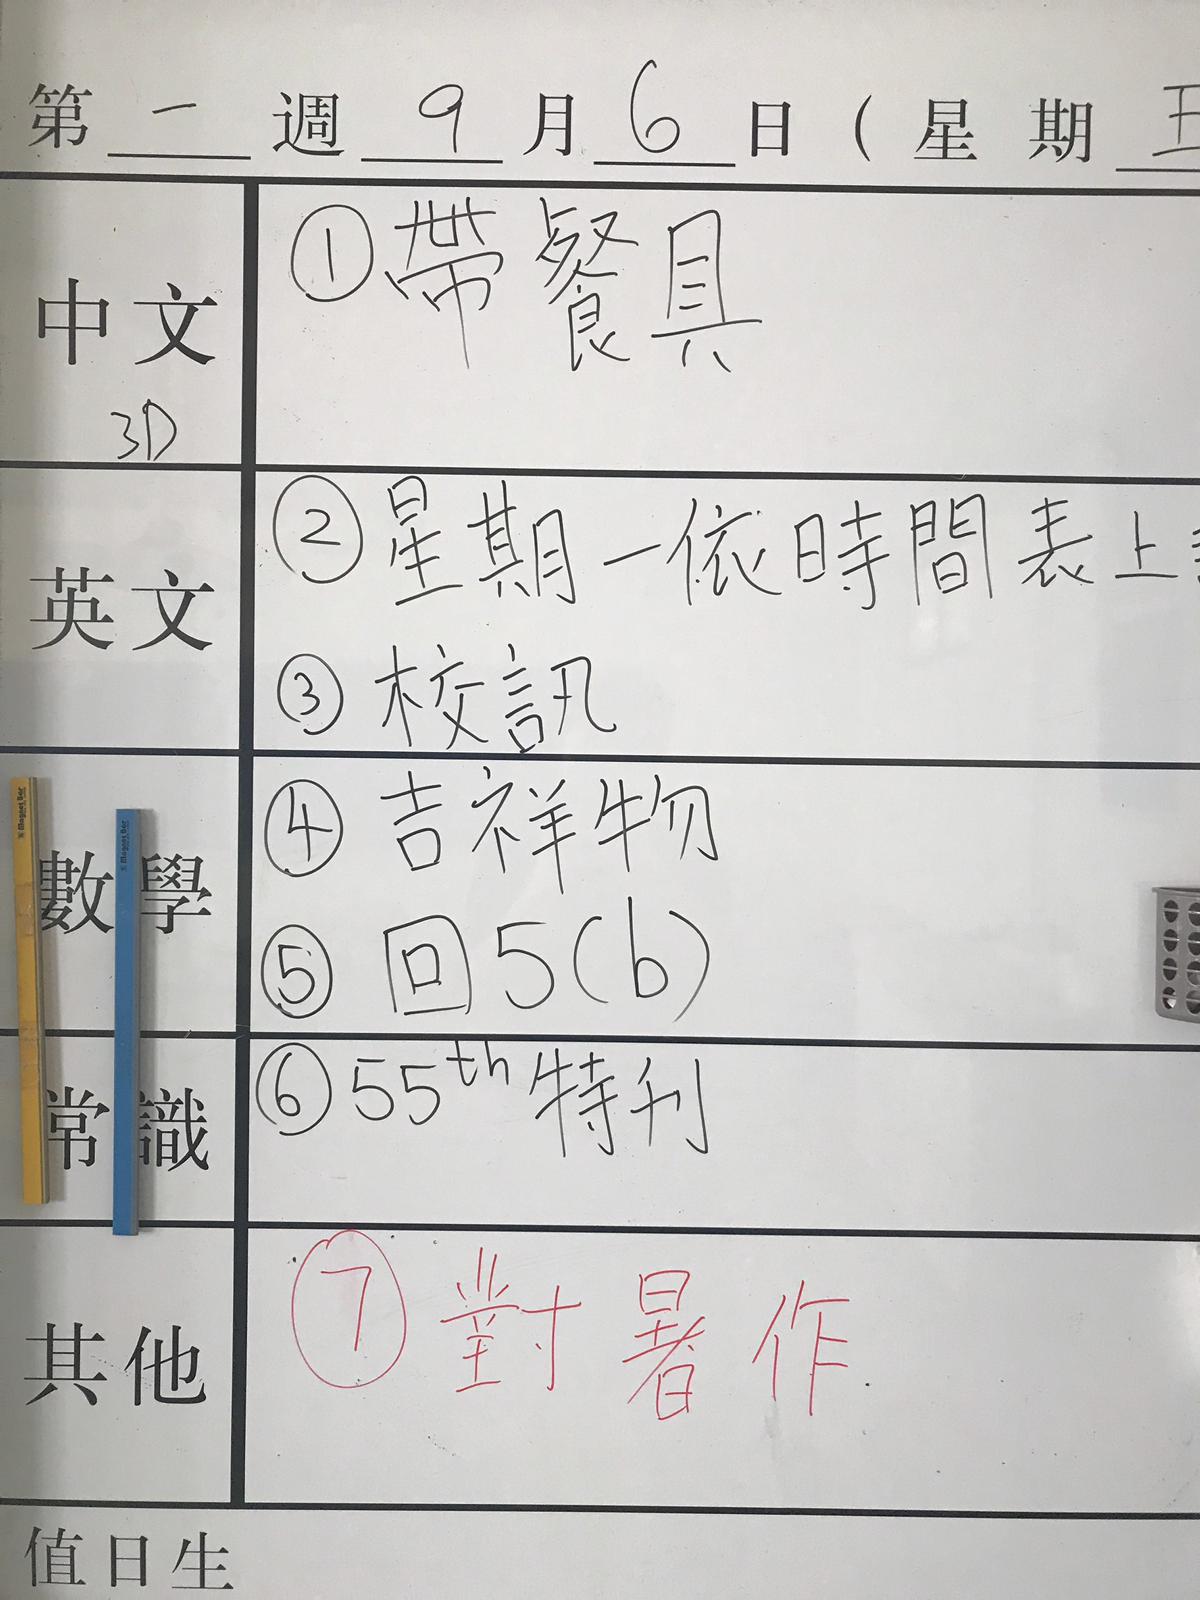 第 一 週 9 月 6 日 ( 星 期 五
中文
3D
① 帶餐具
英文
② 星期一依時間表上
③ 校訊
數學
④ 吉祥物
⑤ 回 5(b)
常識
⑥ 55th 特刊
其他
⑦ 對暑作
值日生